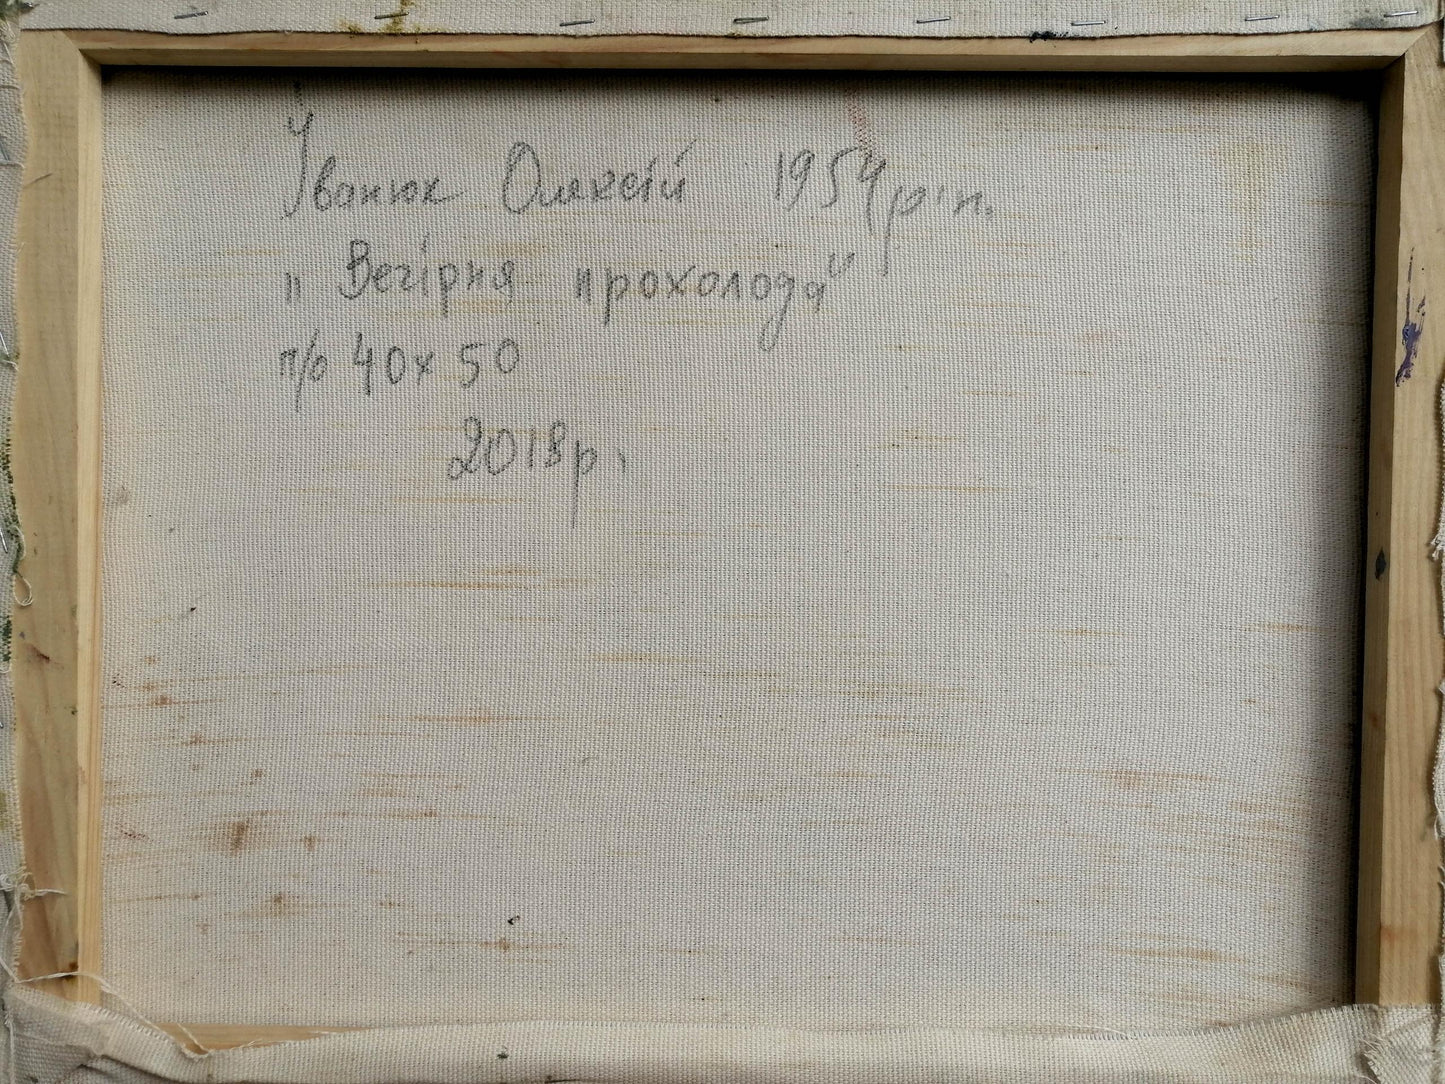 Іванюк Олексій 1954 р.н.
"Вечірня прохолода"
п/о 40х50
2018р.